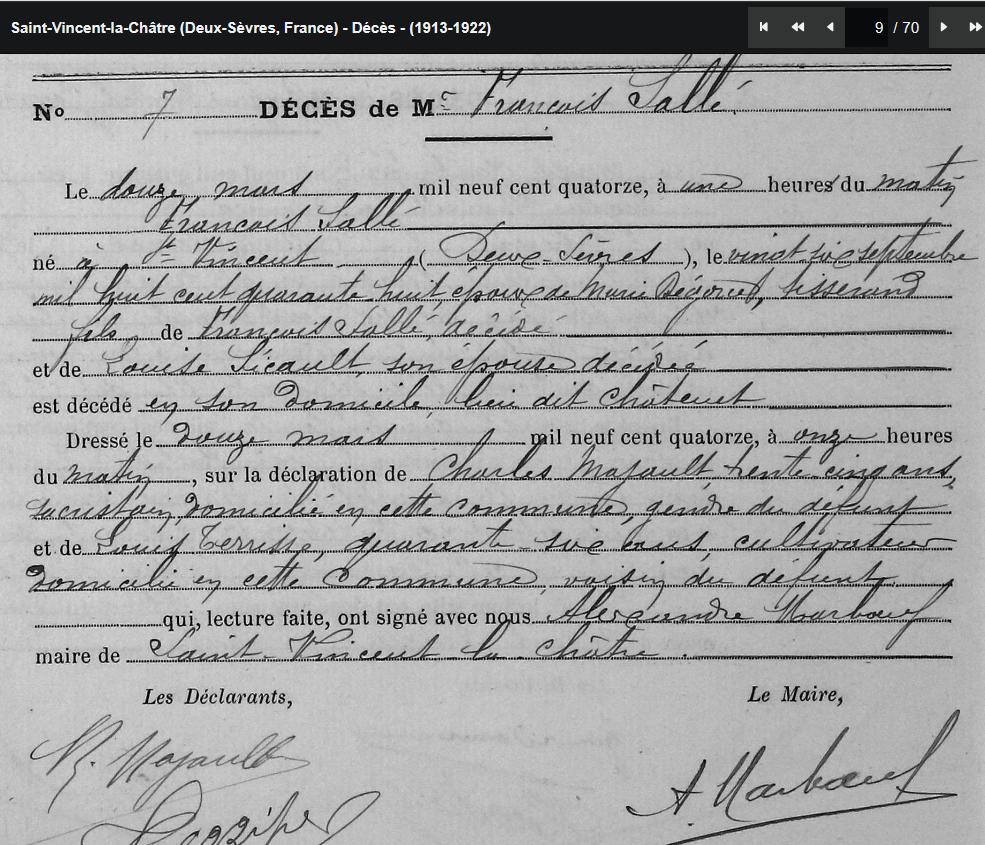 Saint-Vincent-la-Châtre (Deux-Sèvres, France) - Décès - (1913-1922)
9 / 70
No 7 DÉCÈS de Mr François Sallé
Le douze mars mil neuf cent quatorze, à une heures du matin
François Sallé
né à St Vincent (Deux-Sèvres), le vingt six septembre
mil huit cent quarante huit, époux de Marie tisserand
fils de François Sallé, décédé
et de Louise Sicault, son épouse décédée
est décédé en son domicile, lieu dit Châtenet
Dressé le douze mars mil neuf cent quatorze, à onze heures
du matin, sur la déclaration de Charles Majault, trente cinq ans,
sacristain, domicilié en cette commune, gendre du défunt
et de Louis quarante six ans, cultivateur
domicilié en cette commune, voisin du défunt
qui, lecture faite, ont signé avec nous Alexandre Marboeuf
maire de Saint-Vincent la Châtre
Les Déclarants, Le Maire,
Majault
A. Marboeuf